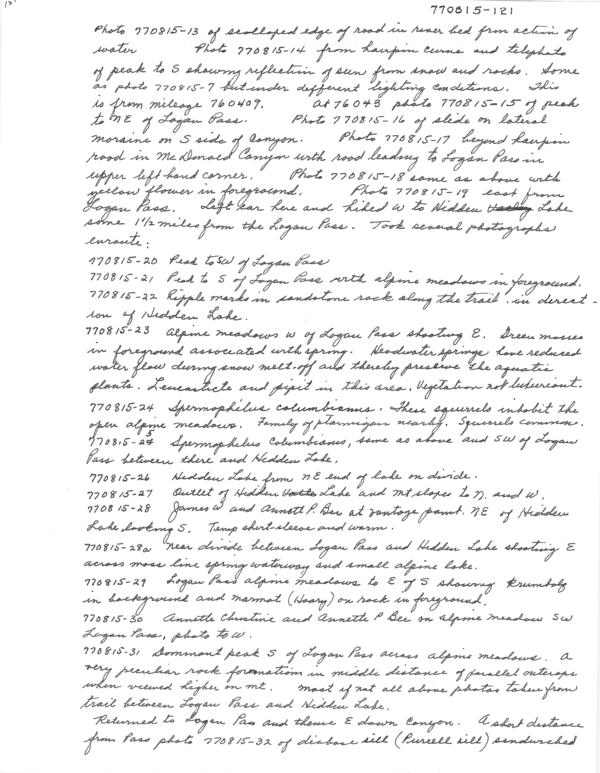 770815-121
Photo 770815-13 of scalloped edge of road in river bed from action of
water Photo 770815-14 from hairpin curve and telephoto
of peak to S showing reflection of sun from snow and rocks. Same
as photo 770815-7 but under different lighting conditions. This
is from mileage 760409. At 76043 photo 770815-15 of peak
to NE of Logan Pass. Photo 770815-16 of slide on lateral
moraine on S side of Canyon. Photo 770815-17 beyond hairpin
road in McDonald Canyon with road leading to Logan Pass in
upper left hand corner. Photo 770815-18 same as above with
yellow flower in foreground. Photo 770815-19 east from
Logan Pass. Left car here and hiked W to Hidden Lake
some 1½ miles from the Logan Pass. Took several photographs
enroute:
770815-20 Peak to SW of Logan Pass
770815-21 Peak to S of Logan Pass with alpine meadows in foreground.
770815-22 Ripple marks in sandstone rock along the trail in direct-
ion of Hidden Lake.
770815-23 Alpine meadows W of Logan Pass shooting E. Green mosses
in foreground associated with spring. Headwater springs have reduced
water flow during snow melt-off and thereby preserve the aquatic
plants. Leucosticte and pipit in this area. Vegetation not luxuriant.
770815-24 Spermophilus columbianus. These squirrels inhabit the
open alpine meadows. Family of ptarmigan nearby. Squirrels common.
770815-25 Spermophilus columbianus, same as above and SW of Logan
Pass between there and Hidden Lake.
770815-26 Hidden Lake from NE end of lake on divide.
770815-27 Outlet of Hidden Lake and mt slopes to N. and W.
770815-28 James W and Annett P. Bee at vantage point. NE of Hidden
Lake looking S. Temp short-sleeve and warm.
770815-28a Near divide between Logan Pass and Hidden Lake shooting E
across moss line spring waterway and small alpine lake.
770815-29 Logan Pass alpine meadows to E of S showing Krumholz
in background and marmot (Hoary) on rock in foreground.
770815-30 Annette Christine and Annette P Bee on alpine meadow SW
Logan Pass, photo to W.
770815-31 Dominant peak S of Logan Pass across alpine meadows. A
very peculiar rock formation in middle distance of parallel outcrops
when viewed higher on mt. Most if not all above photos taken from
trail between Logan Pass and Hidden Lake.
Returned to Logan Pass and thence E down Canyon. A short distance
from Pass photo 770815-32 of diabase sill (Purcell sill) sandwiched